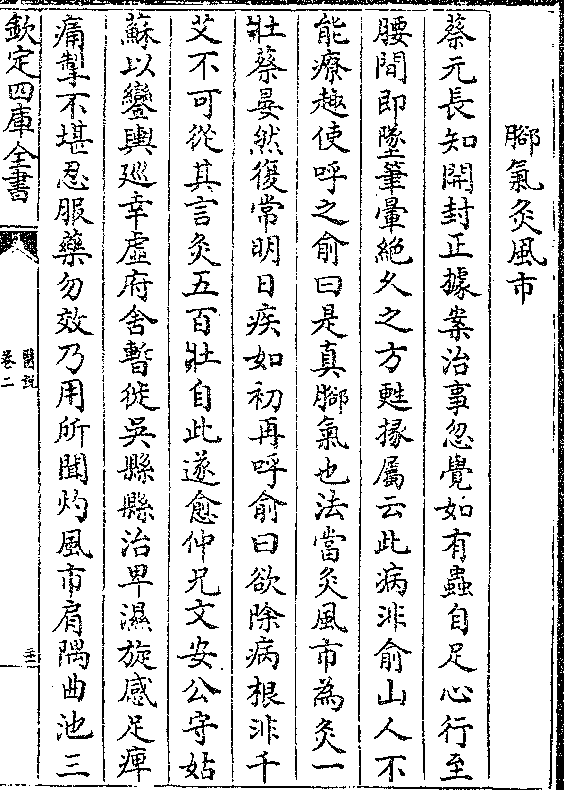 腳氣灸風市
蔡元長知開封正據案治事忽覺如有蟲自足心行至
腰間即墜筆暈絶久之方甦掾属云此病非俞山人不
能療趣使呼之俞曰是真腳氣也法當灸風市為灸一
壯蔡晏然復常明日疾如初再呼俞曰欲除病根非千
艾不可從其言灸五百壯自此遂愈仲兄文安公守姑
蘇以鑾輿廵幸虚府舍暫徙吳縣縣治卑濕旋感足痺
痛掣不堪忍服藥勿效乃用所聞灼風市肩隅曲池三
欽定四庫全書
醫説
卷二